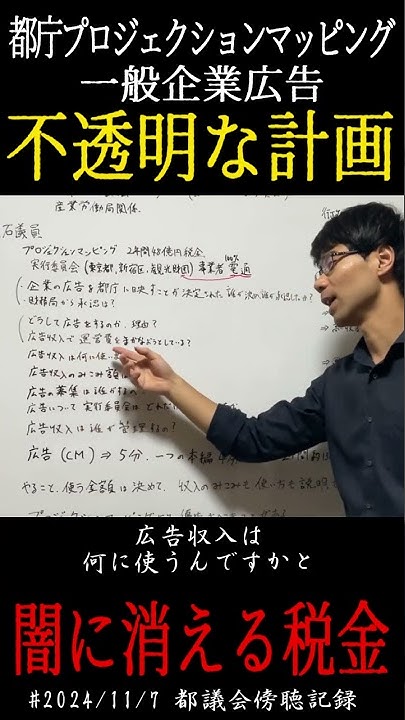 都庁プロジェクションマッピング
一般企業広告
不透明な計画
産業労働局関係
石議員
プロジェクションマッピング 2年間48億円税金
実行委員会(東京都、新宿区、観光財団)事業者100%電通
・企業の広告を都庁に映すことが決定された 誰が決め誰が承認したか?
・財務局から承認は?
どうして広告をするのか、理由?
広告収入で運営費をまかなおうとしている?
広告収入は何に使い
広告収入のみこみ額は
広告の募集は誰がするの
広告について実行委員会は
広告収入は誰が管理するの?
広告(CM)⇒5分、一つの本編
やること、使う金額は決めて、収入のみこみも使い方も説明
広告収入は
何に使うんですかと
闇に消える税金
#2024/11/7 都議会傍聴記録